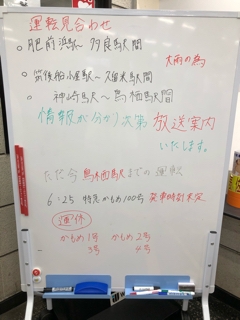 運転見合わせ
○肥前浜駅～多良駅間
大雨の為
○筑後船小屋駅～久留米駅間
神崎駅～鳥栖駅間
情報が分かり次第 放送案内
いたします。
ただ今 鳥栖駅までの運転
6:25 特急かもめ100号 発車時刻未定
運休
かもめ1号 かもめ2号
3号 4号